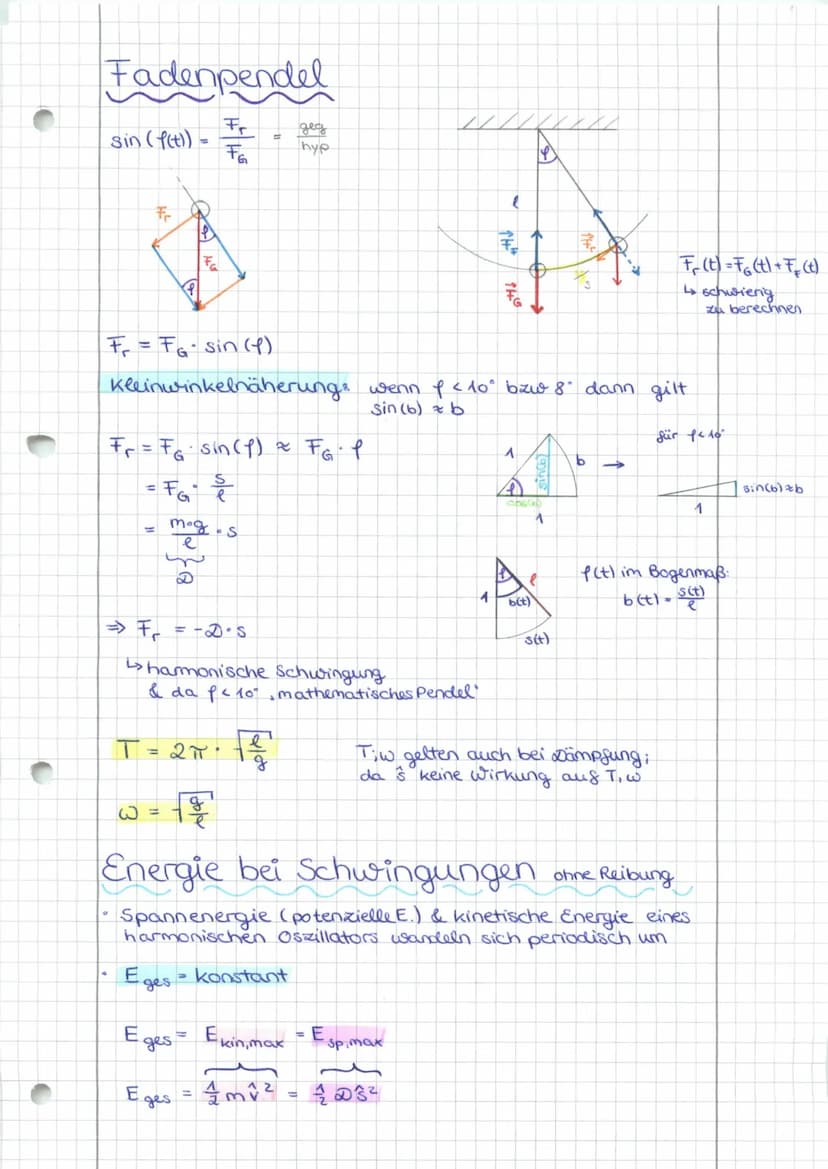 Fadenpendel
sin(φ(t)) = Fr/FG = geg/hyp
φ
l
Fr
φ
FG
φ
F⃗F
F⃗r
s
F⃗G
Fr(t) = FG(t) + FF(t)
↳ schwierig
zu berechnen
Fr = FG · sin(φ)
Kleinwinkelnäherung: wenn φ < 10° bzw 8° dann gilt
sin(b) ≈ b
Fr = FG · sin(φ) ≈ FG · φ
= FG · s/l
= m·g/l · s
D
1
sin(b)
b
→
φ
cos(b)
1
für φ < 10°
sin(b) ≈ b
1
φ
l
1
b(t)
s(t)
φ(t) im Bogenmaß:
b(t) = s(t)/l
⇒ Fr = -D·s
↳ harmonische Schwingung
& da φ < 10° "mathematisches Pendel"
T = 2π · √(l/g)
T; ω gelten auch bei Dämpfung;
da ŝ keine Wirkung auf T, ω
ω = √(g/l)
Energie bei Schwingungen ohne Reibung
• Spannenergie (potenzielle E.) & kinetische Energie eines
harmonischen Oszillators wandeln sich periodisch um
• E ges = konstant
E ges = E kin,max = E sp,max
E ges = 1/2 m v̂² = 1/2 D ŝ²